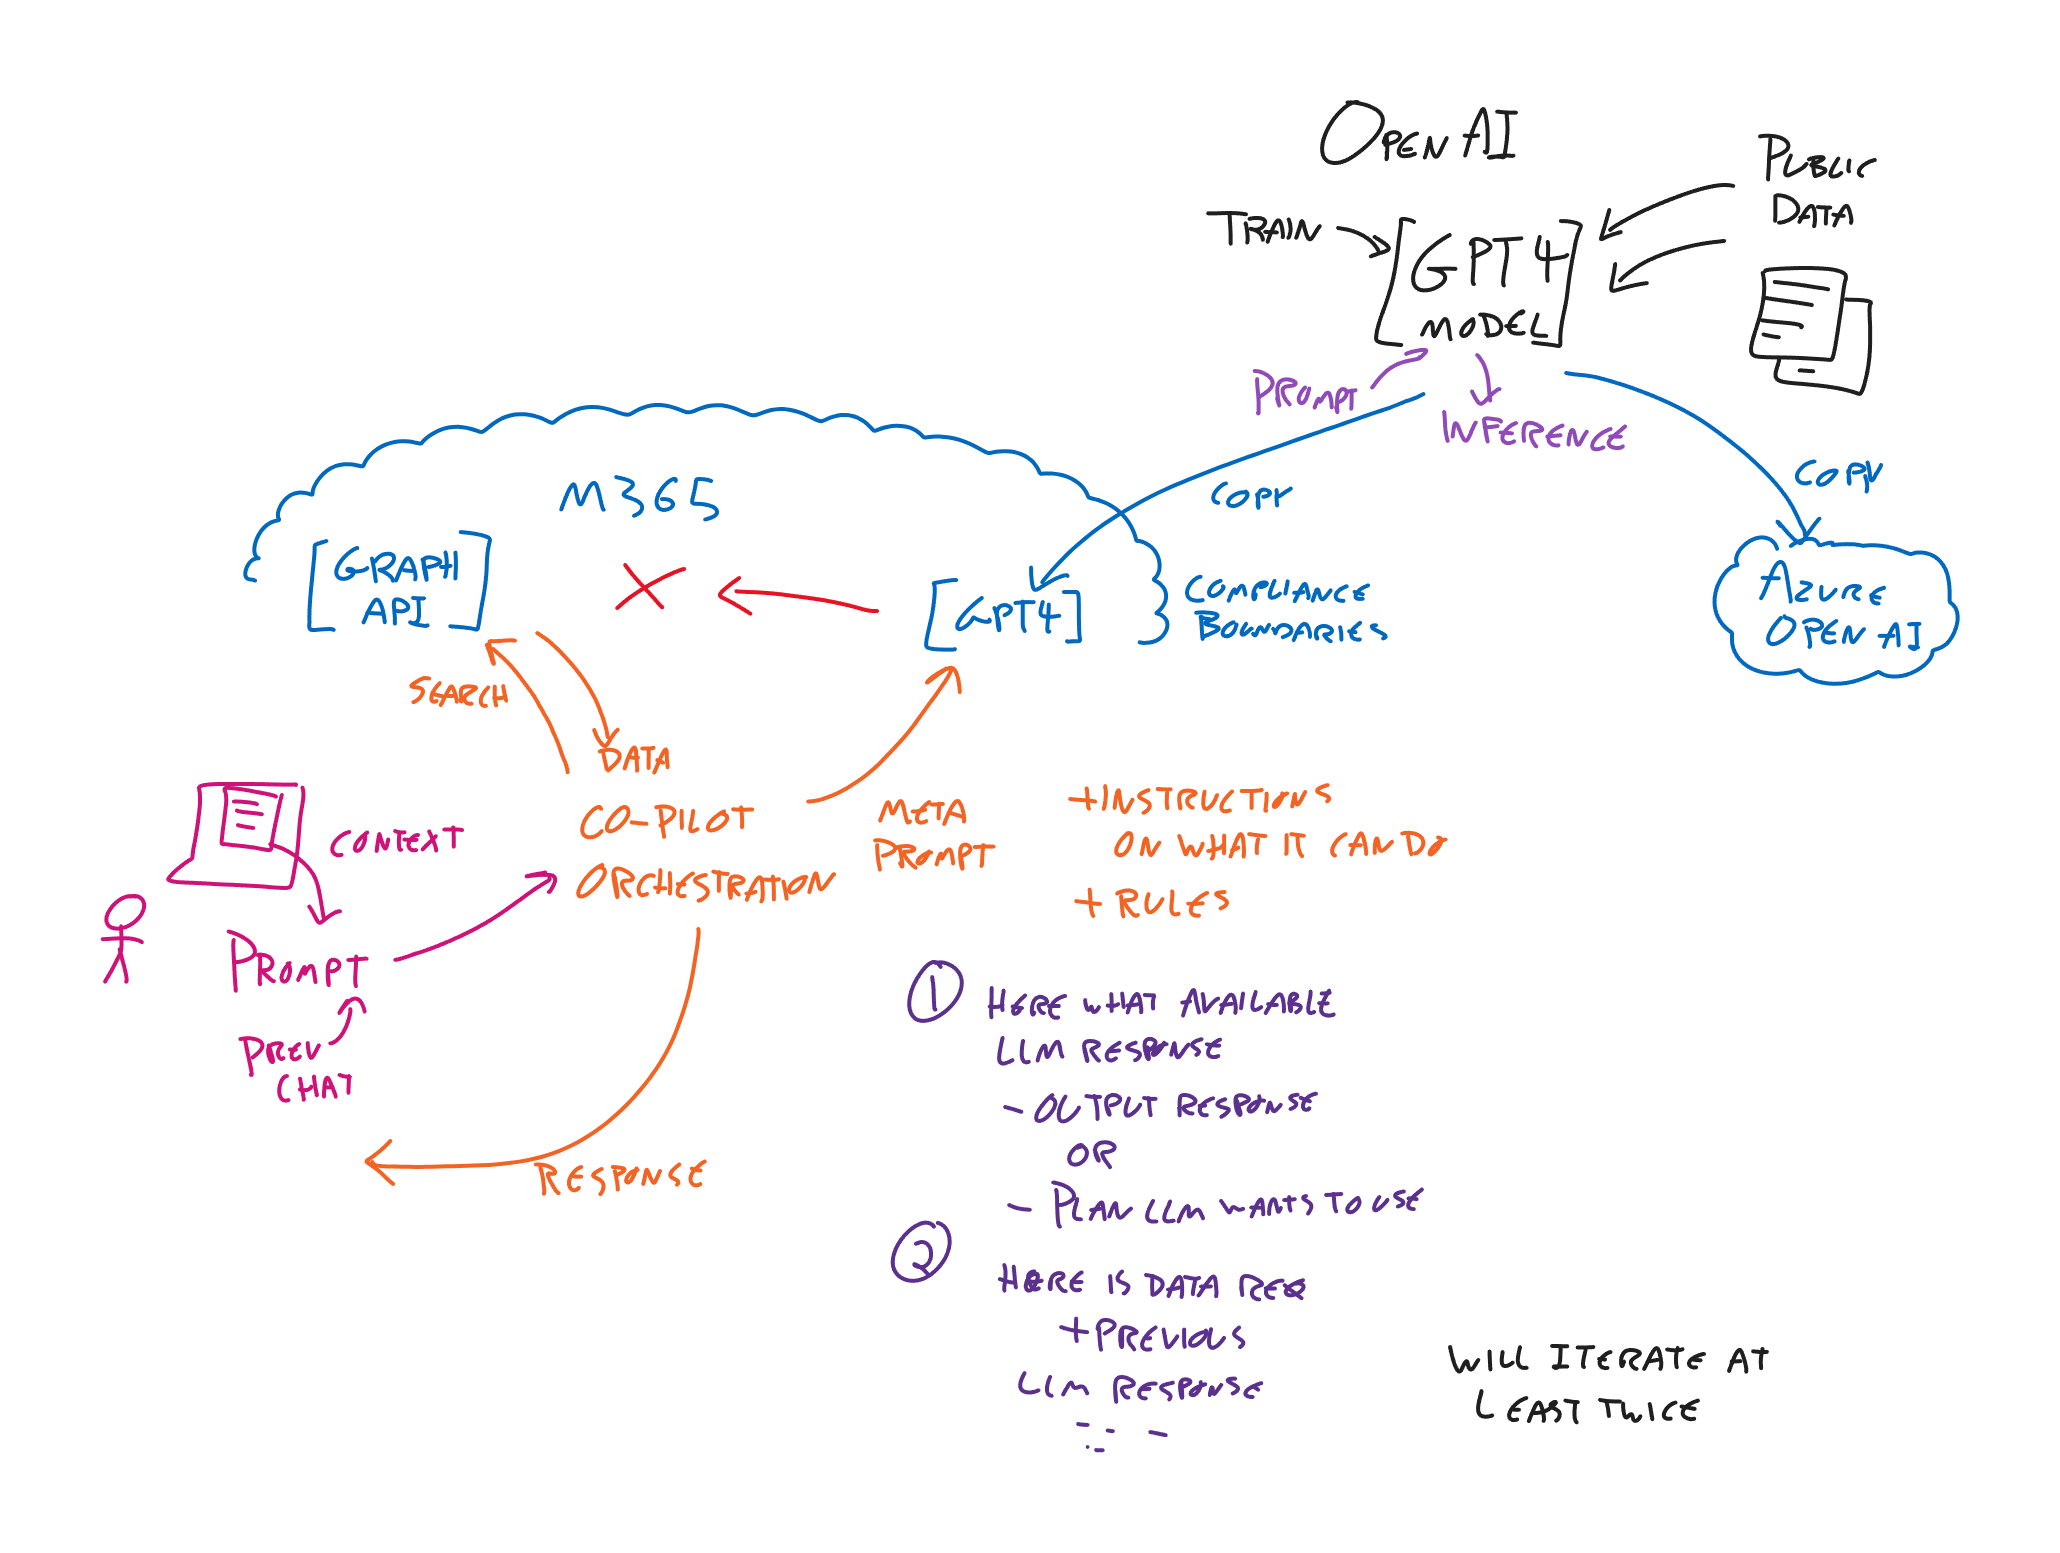 OPEN AI
PUBLIC
DATA
TRAIN
GPT4
MODEL
PROMPT
INFERENCE
COPY
COPY
M365
GRAPH
API
GPT4
COMPLIANCE
BOUNDARIES
AZURE
OPEN AI
SEARCH
DATA
CO-PILOT
ORCHESTRATION
META
PROMPT
+INSTRUCTIONS
ON WHAT IT CAN DO
+ RULES
CONTEXT
PROMPT
PREV
CHAT
RESPONSE
1 HERE WHAT AVAILABLE
LLM RESPONSE
- OUTPUT RESPONSE
OR
- PLAN LLM WANTS TO USE
2
HERE IS DATA REQ
+PREVIOUS
LLM RESPONSE
WILL ITERATE AT
LEAST TWICE